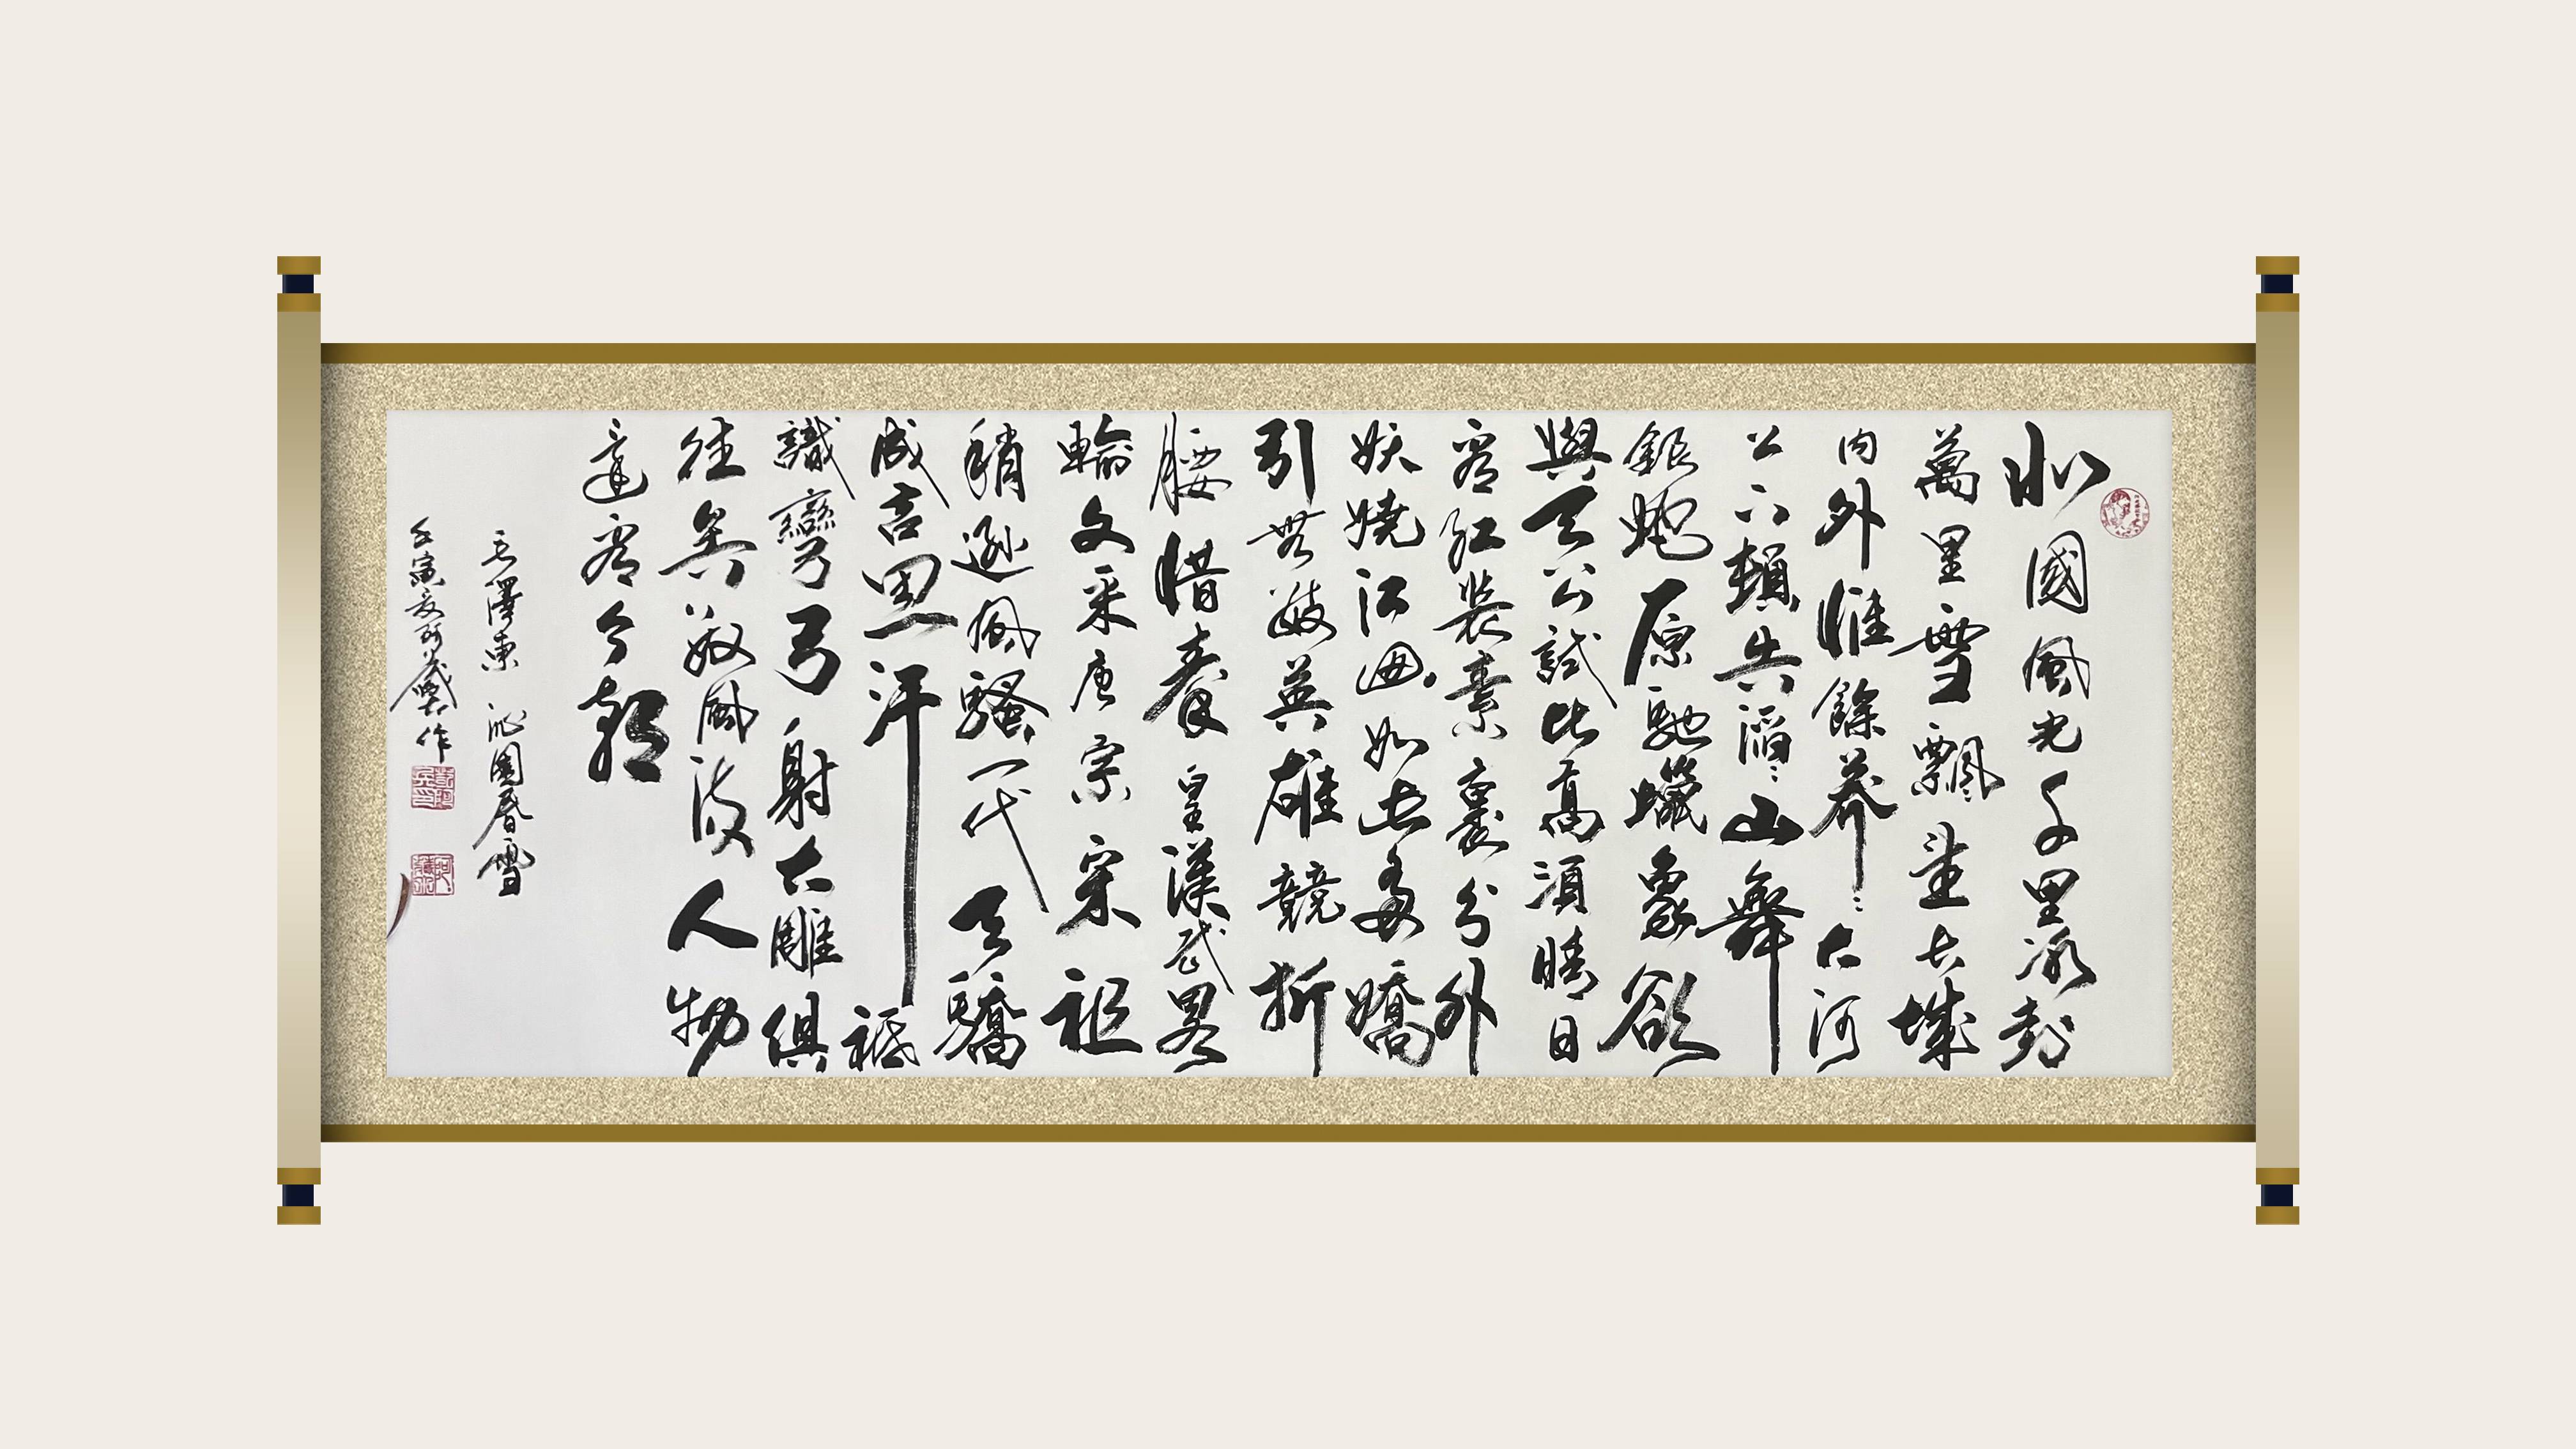 北國風光千里冰封
萬里雪飄望長城
内外惟餘莽〻大河
上下頓失滔〻山舞
銀蛇原馳蠟象欲
與天公試比高須晴日
看紅裝素裹分外
妖嬈江山如此多嬌
引無數英雄競折
腰惜秦皇漢武略
輸文采唐宗宋祖
稍遜風騷一代天驕
成吉思汗祗
識彎弓射大雕俱
往矣數風流人物
還看今朝
毛澤東 沁園春雪
壬寅夏阿作